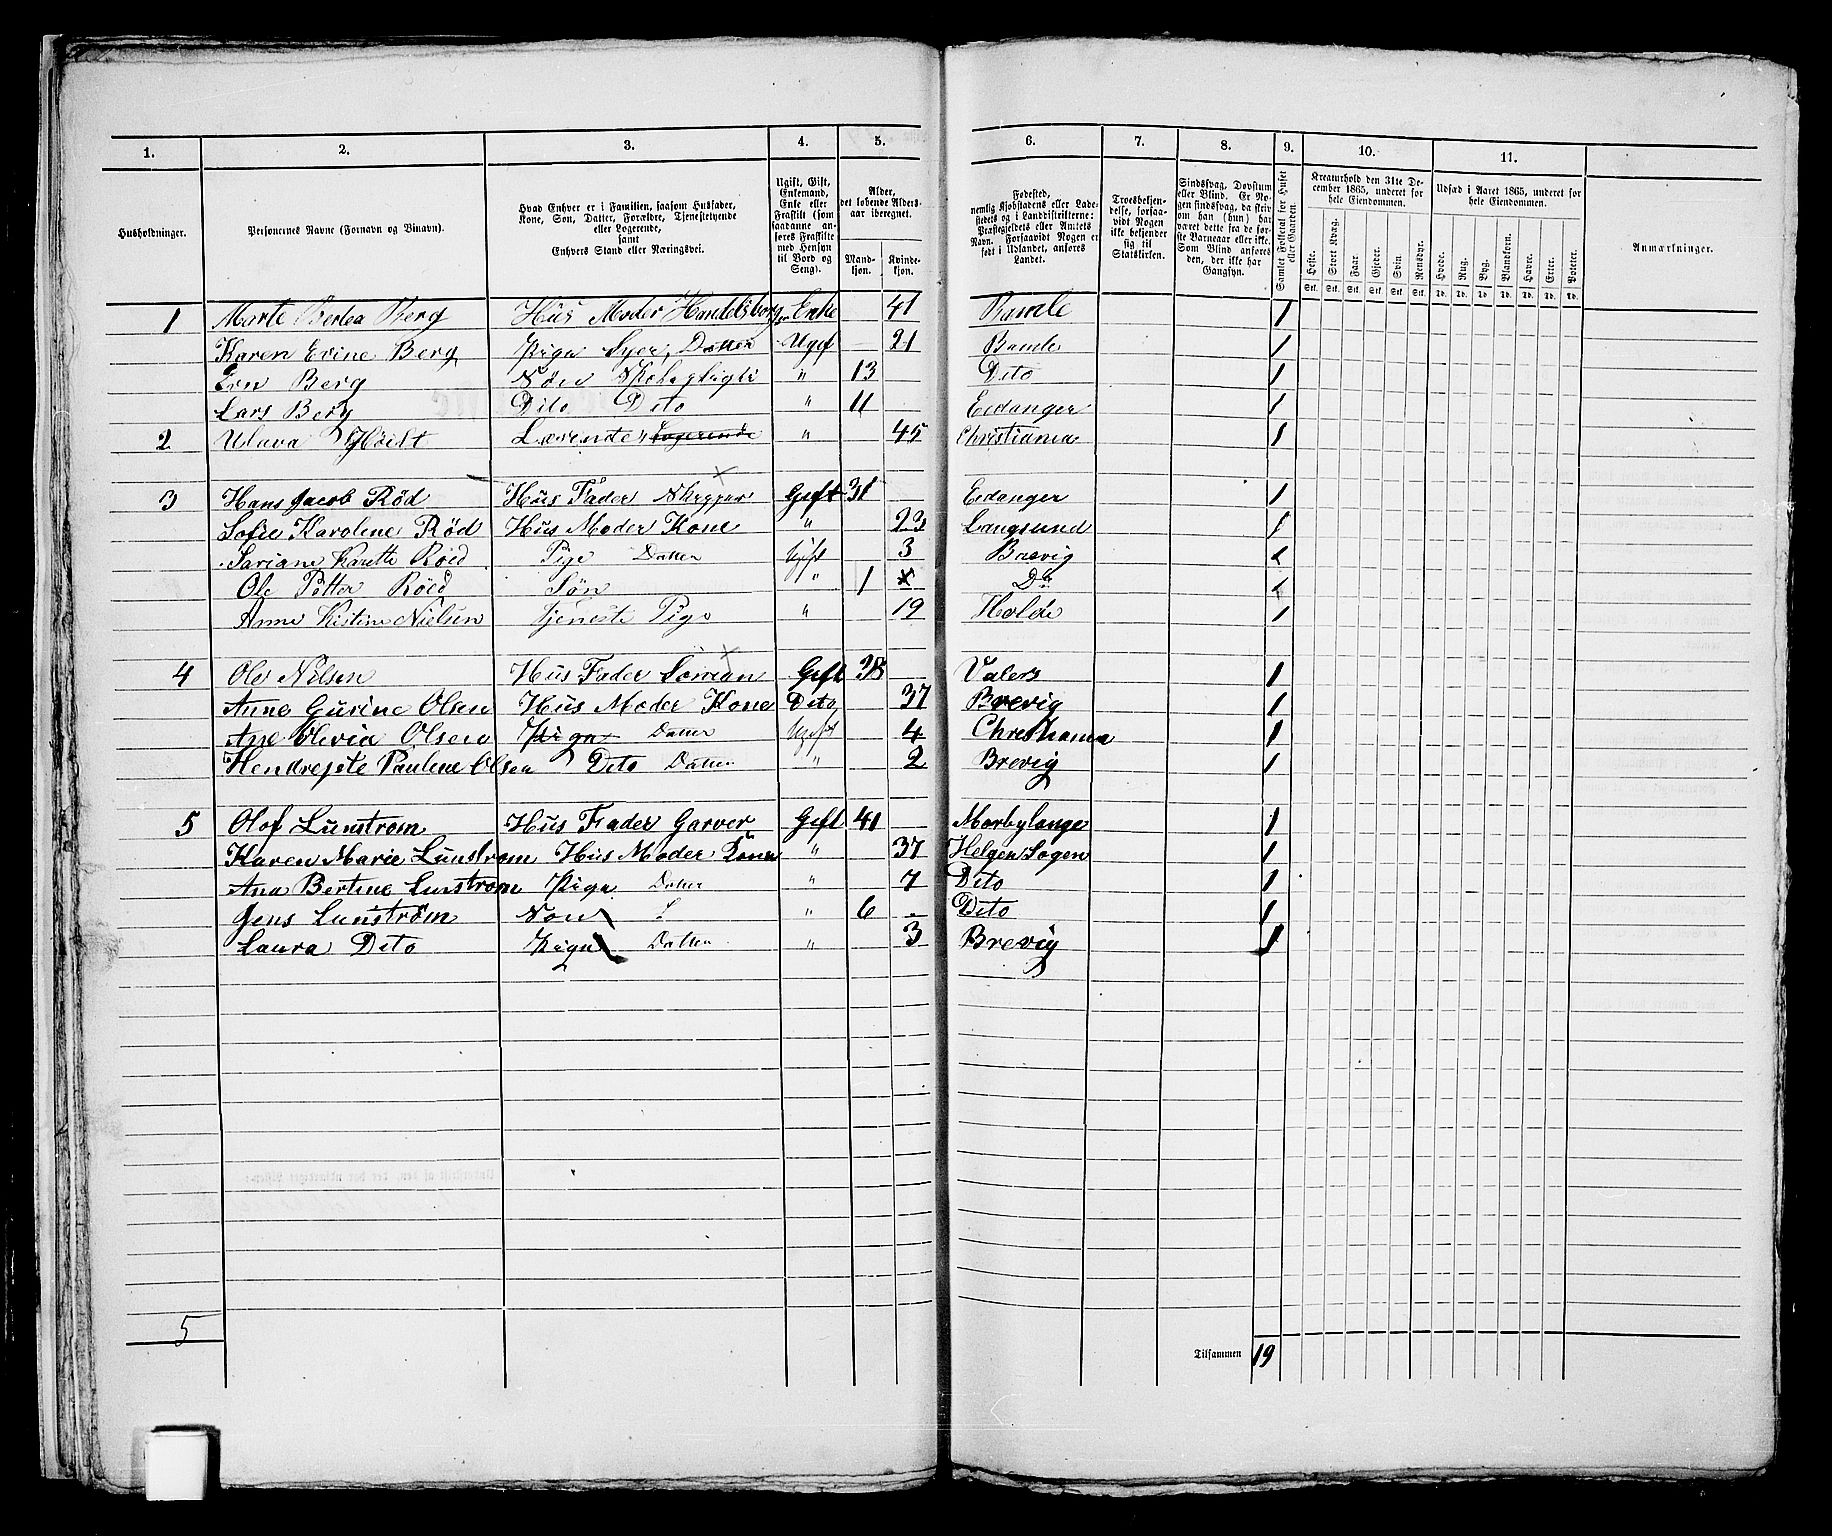 1. 2. 3. 4. 5. 6. 7. 8. 9. 10. 11.
Husholdninger.
Personernes Navne (Fornavn og Binavn).
Hvad Enhver er i Familien, saasom Husfader, Kone, Søn, Datter, Forældre, Tjenestetyende eller Logerende, samt Enhvers Stand eller Næringsvei.
Ugift, Gift, Enkemand, Enke eller Fraskilt (som saadanne anføres Fraskilte med Hensyn til Bord og Seng).
Alder, det løbende Aldersaar iberegnet.
Mandkjøn. Kvindekjøn.
Fødested, nemlig Kjøbstadens eller Ladestedets og i Landdistrikterne: Præstegjeldets eller Amtets Navn. Forsaavidt Nogen er født i Udlandet, anføres Landet.
Troesbekjendelse, forsaavidt Nogen ikke bekjender sig til Statskirken.
Sindssvag, Døvstum eller Blind. Er Nogen sindssvag, da skriv om han (hun) har været dette fra de første Barneaar eller ikke. Som Blind anføres den, der ikke har Gangsyn.
Samlet Folketal for Huset eller Gaarden.
Kreaturhold den 31te December 1865, underet for hele Eiendommen.
Heste. Stort Kvæg. Faar. Gjeder. Svin. Rensdyr.
Stk. Stk. Stk. Stk. Stk. Stk.
Udsæd i Aaret 1865, underet for hele Eiendommen.
Hvede. Rug. Byg. Blandkorn. Havre. Erter. Poteter.
Td. Td. Td. Td. Td. Td. Td.
Anmærkninger.
1 Marte Berg Hus Moder Enke 41 Bamle 1
Karen Evine Berg Pige Syer, Datter Ugf 21 Bamle 1
Berg Søn " 13 Dito 1
Lars Berg Dito Dito " 11 Eedanger 1
2 Logerende " 45 Christiania 1
3 Hans Jacob Röd Hus Fader Gift 31 Eedanger 1
Sofie Karolene Röd Hus Moder Kone " 23 Langsund 1
Röed Pige Datter Ugift 3 Brevig 1
Ole Petter Röed Søn " 1 Do 1
Anne Kistine Nielsen tjeneste Pige " 19 Holde 1
4 Ole Nilsen Hus Fader Gift 28 Valers 1
Anne Gurine Olsen Hus Moder Kone Dito 37 Brevig 1
Ane Olevia Olsen Pige Datter Ugift 4 Christiania 1
Paulene Olsen Dito Datter " 2 Brevig 1
5 Olof Lunstrøm Hus Fader Garver Gift 41 Morbylange 1
Karen Marie Lunstrøm Hus Moder Kone " 37 Helgen Sogen 1
Ana Bertine Lunstrøm Pige Datter " 7 Dito 1
Jens Lunstrøm Søn " 6 Dito 1
Laura Dito Pige Datter " 3 Brevig 1
5
Tilsammen 19